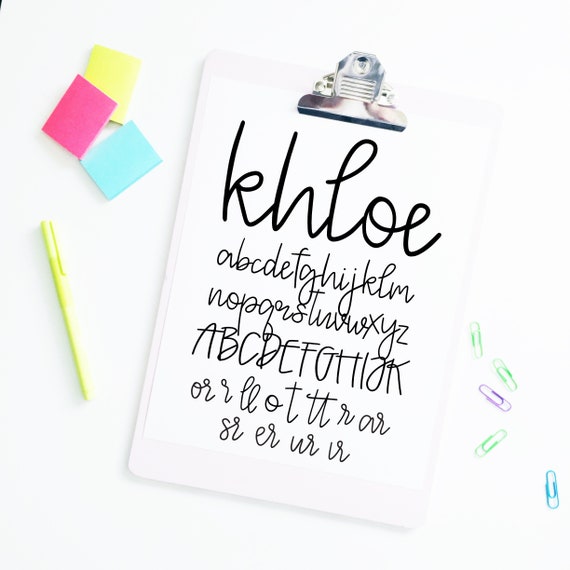 khloe
abcdefghijklm
nopqrstuvwxyz
ABCDEFGHIJK
or r ll o t tt r ar
sr er ur ir